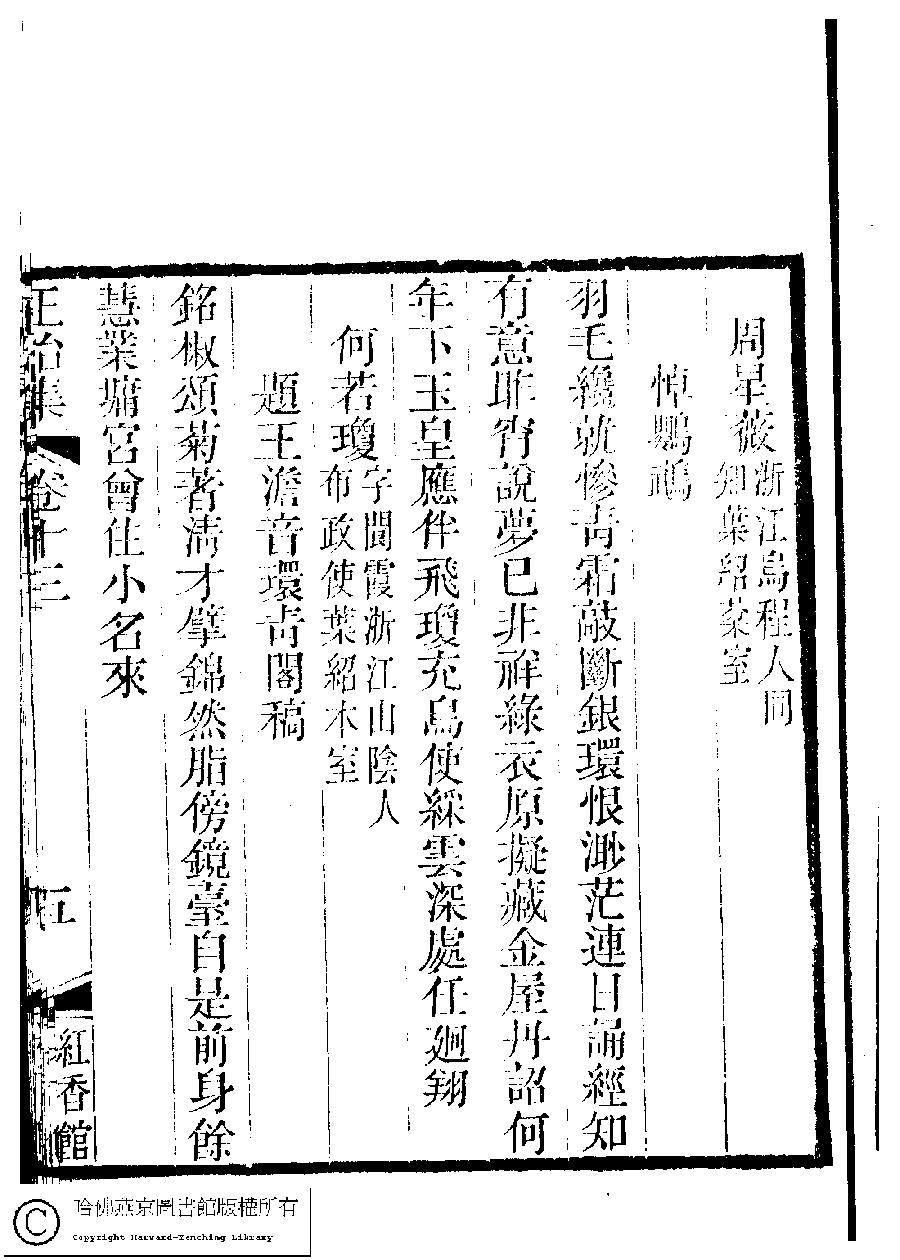 周星薇浙江烏程人同
知葉紹棻室
悼鸚鵡
羽毛纔就慘靑霜敲斷銀環恨渺茫連日誦經知
有意昨宵說夢已非祥綠衣原擬藏金屋丹詔何
年下玉皇應伴飛瓊充鳥使綵雲深處任廻翔
何若瓊字閬霞浙江山陰人
布政使葉紹本室
題王澹音環靑閣稿
銘椒頌菊著淸才擘錦然脂傍鏡臺自是前身餘
慧業墉宮曾住小名來
正始集 卷十三 五 紅香館
哈佛燕京圖書館版權所有
Copyright Harvard-Yenching Library